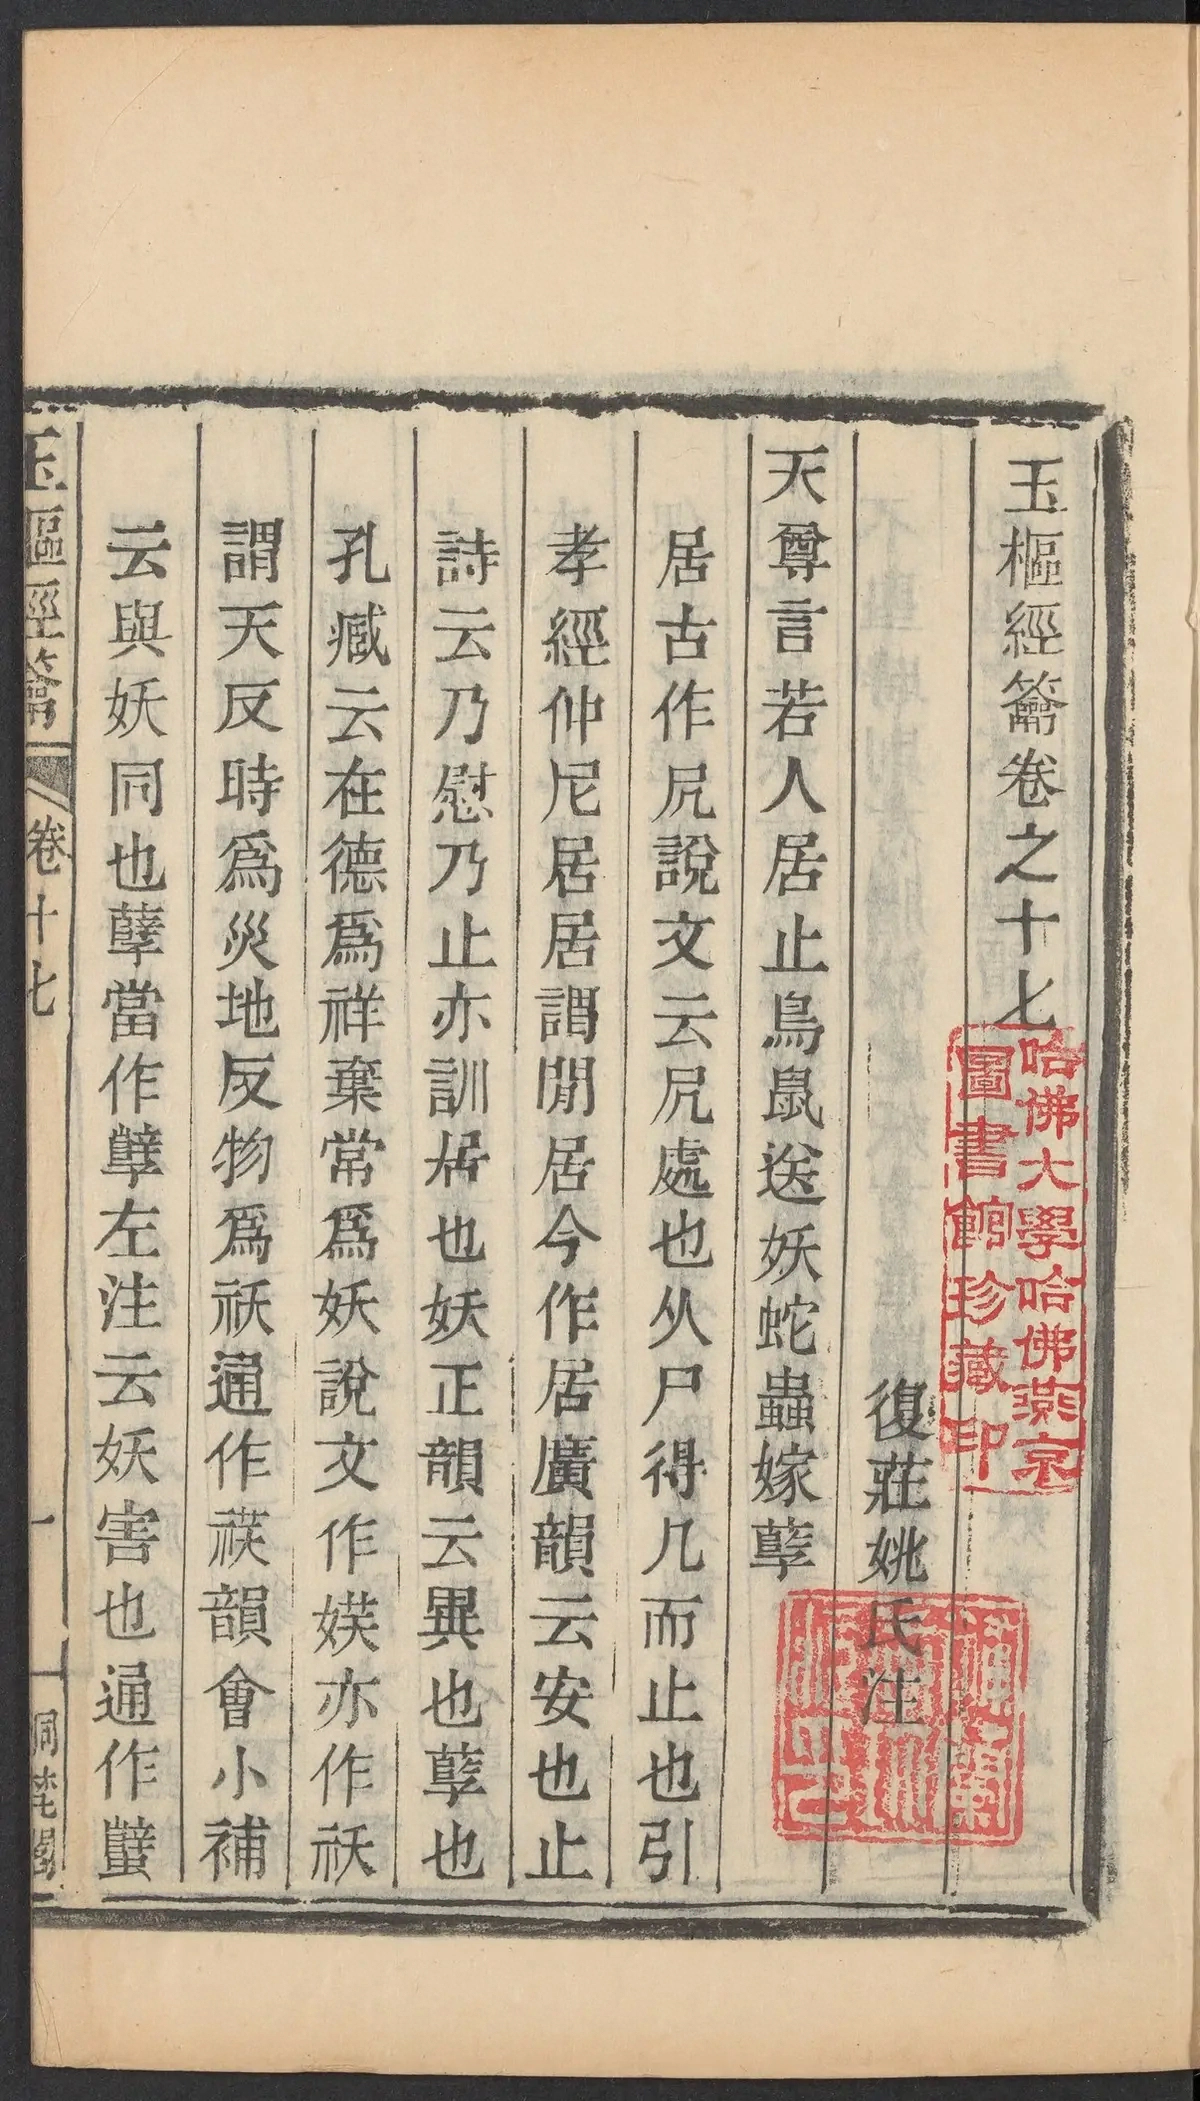 玉樞經籥卷之十七
復莊姚氏注
天尊言若人居止鳥鼠送妖蛇蟲嫁孽
居古作凥說文云凥處也从尸得几而止也引
孝經仲尼居居謂閒居今作居廣韻云安也止
詩云乃慰乃止亦訓居也妖正韻云異也孽也
孔臧云在德爲祥棄常爲妖說文作媄亦作祅
謂天反時爲災地反物爲祅通作䄏韻會小補
云與妖同也孽當作孼左注云妖害也通作蠥
玉樞經籥
卷十七
一
哈佛大學哈佛燕京
圖書館珍藏印